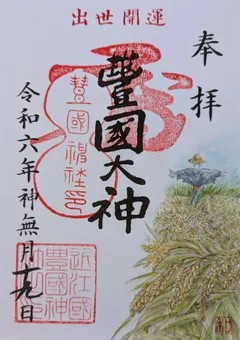 出世開運
奉拝
豐國大神
豊國神社印
令和六年 神無月十九日
近江國
豊國神